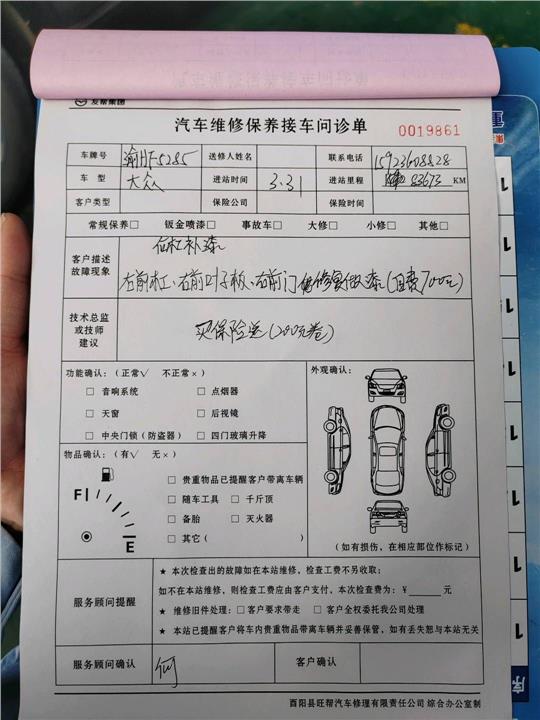 友帮集团
汽车维修保养接车问诊单 0019861
车牌号 渝HF5285 送修人姓名 联系电话 15923608828
车 型 大众 进站时间 3.31 进站里程 83673 KM
客户类型 保险公司 保险时间
常规保养□ 钣金喷漆□ 事故车□ 大修□ 小修□ 其他□
客户描述
故障现象
杠补漆
右前杠、右前叶子板、右前门 做漆(自费700元)
技术总监
或技师
建议
买保险送(200元卷)
功能确认:(正常√ 不正常×)
□ 音响系统 □ 点烟器
□ 天窗 □ 后视镜
□ 中央门锁(防盗器) □ 四门玻璃升降
外观确认:
物品确认:(有√ 无×)
□ 贵重物品已提醒客户带离车辆
□ 随车工具 □ 千斤顶
□ 备胎 □ 灭火器
□ 其它( )
F
E
(如有损伤,在相应部位作标记)
服务顾问提醒
★ 本次检查出的故障如在本站维修,检查工费不另收取;
如不在本站维修,则检查工费应由客户支付,本次检查费为:¥ 元
★ 维修旧件处理:□ 客户要求带走 □ 客户全权委托我公司处理
★ 本站已提醒客户将车内贵重物品带离车辆并妥善保管,如有丢失恕与本站无关
服务顾问确认 何 客户确认
酉阳县旺帮汽车修理有限责任公司 综合办公室制
序